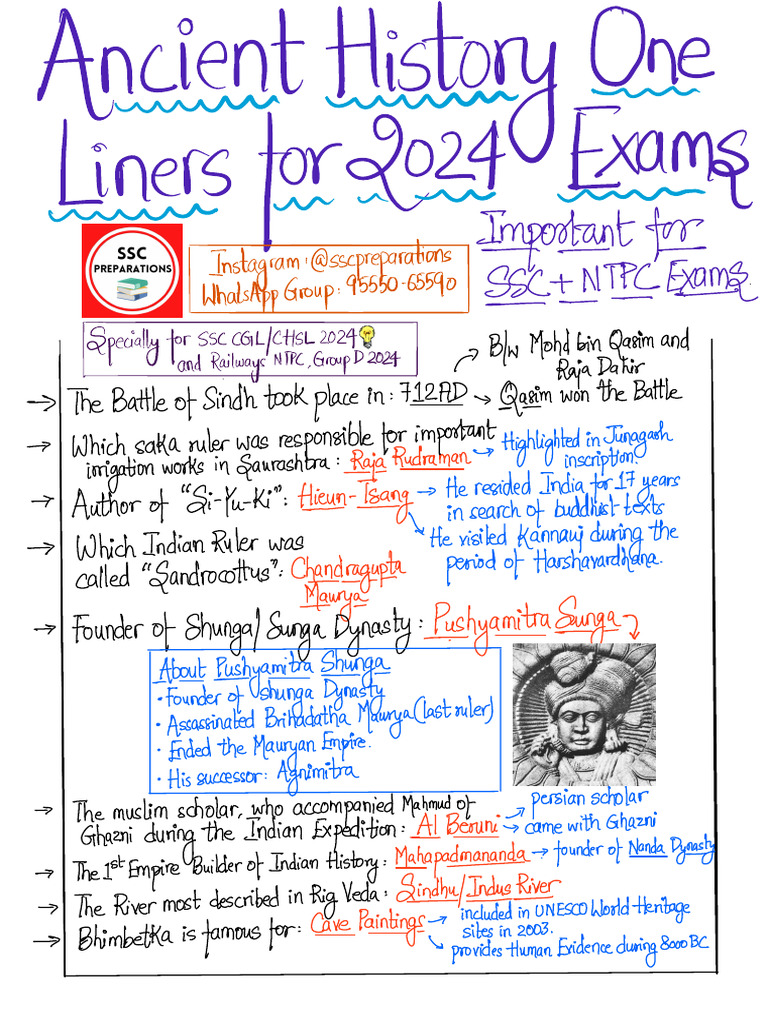 Ancient History One
Liners for 2024 Exams
Important for
SSC + NTPC Exams.
SSC
PREPARATIONS
Instagram: @sscpreparations
WhatsApp Group: 95550-65590
Specially for SSC CGL/CHSL 2024
and Railways NTPC, Group D 2024
B/w Mohd bin Qasim and
Raja Dahir
→ The Battle of Sindh took place in: 712AD → Qasim won the Battle
→ Which saka ruler was responsible for important
irrigation works in Saurashtra: Raja Rudraman → Highlighted in Junagarh
inscription.
→ Author of "Si-Yu-Ki": Hieun-Tsang → He resided India for 17 years
in search of buddhist texts
→ He visited Kannauj during the
period of Harshavardhana.
→ Which Indian Ruler was
called "Sandrocottus": Chandragupta
Maurya
→ Founder of Shunga/Sunga Dynasty: Pushyamitra Sunga →
About Pushyamitra Shunga
• Founder of shunga Dynasty
• Assassinated Brihadatha Maurya (last ruler)
• Ended the Mauryan Empire.
• His successor: Agnimitra
→ The muslim scholar, who accompanied Mahmud of
Ghazni during the Indian Expedition: Al Beruni → persian scholar
→ came with Ghazni
→ The 1st Empire Builder of Indian History: Mahapadmananda → founder of Nanda Dynasty
→ The River most described in Rig Veda: Sindhu/Indus River
→ Bhimbetka is famous for: Cave Paintings → included in UNESCO World Heritage
sites in 2003.
→ provides Human Evidence during 8000 BC